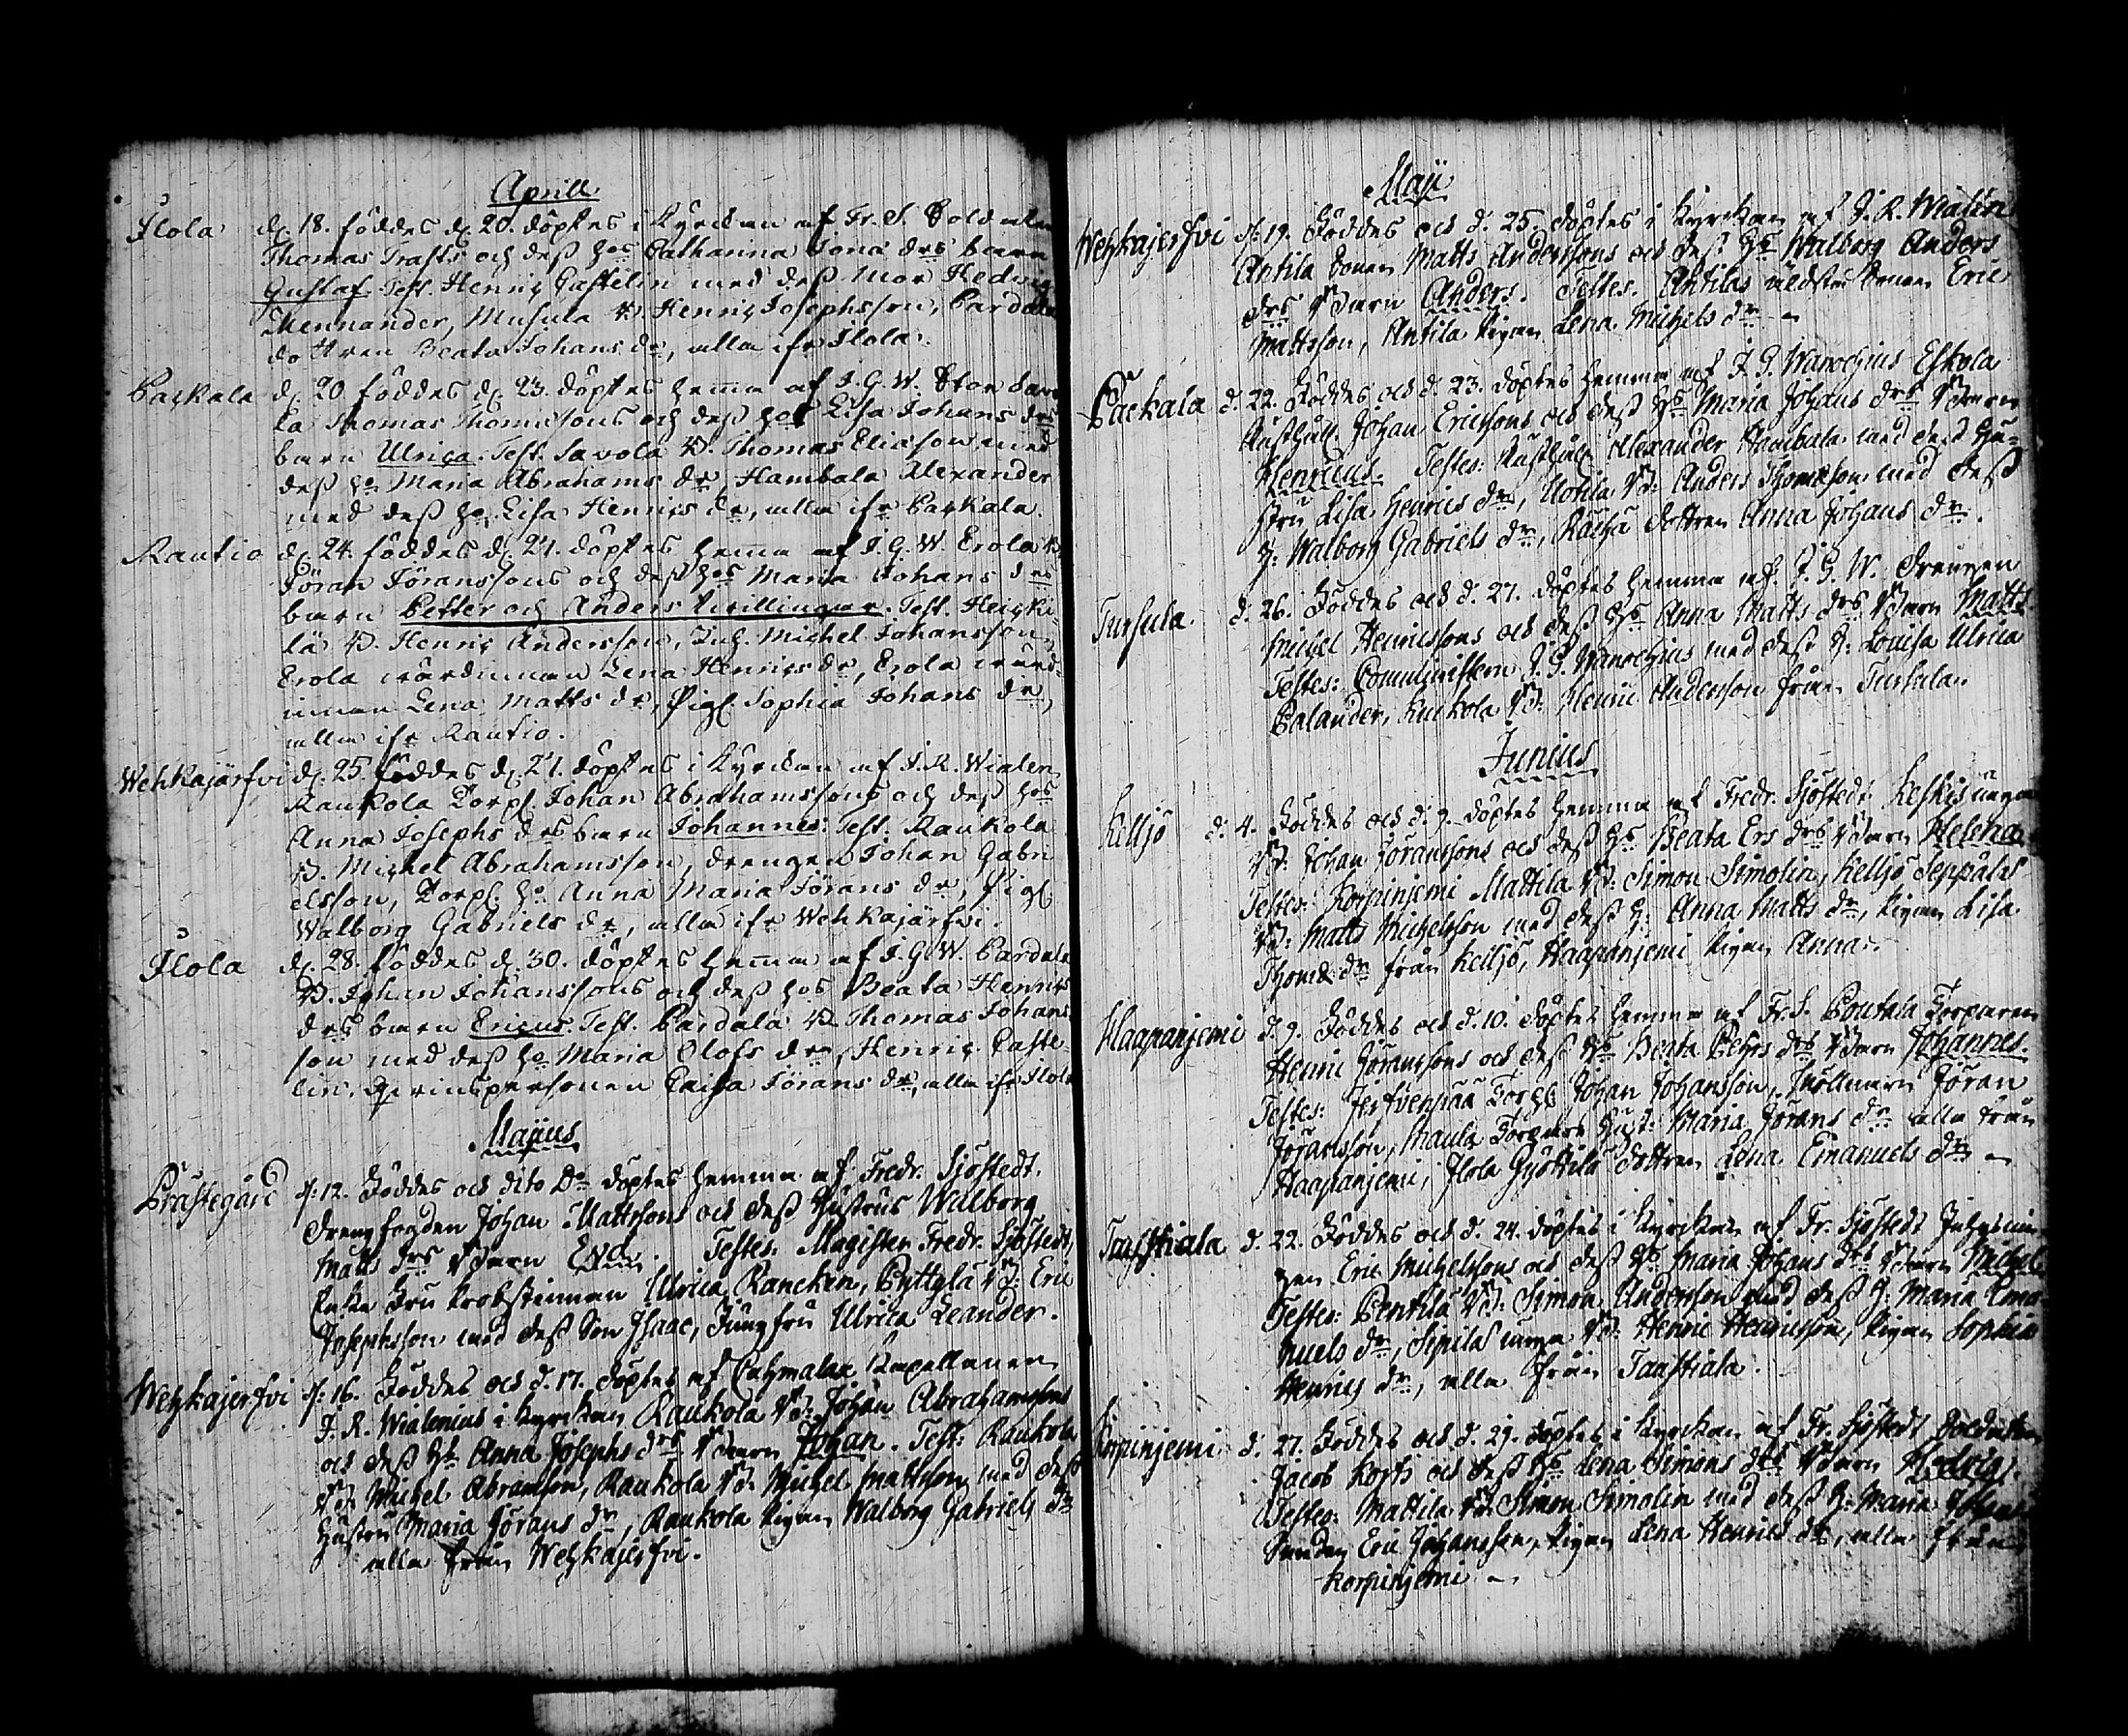 Aprill
Ilola d. 18. föddes d. 20. döptes i Kyrckan af Fr. S. Soldaten
Thomas Trafts och dess hos Catharina Jona drs barn
Gustaf. Test. Henric Castelin med dess mor Hedvig
Mennander, Musula B. Henric Josephsson, Pardala
dottren Beata Johans dr, alla ifr Ilola.
Packala d. 20 föddes d. 23. döptes hema af J. G. W. Stor Savo
la Thomas Thomassons och dess hos Lisa Johans drs
barn Ulrica. Test. Savola B. Thomas Eliasson med
dess ho Maria Abrahams dr, Hambala Alexander
med dess ho Lisa Henrics dr, alla ifr Packala.
Rautio d. 24. föddes d. 24. döptes hema af J. G. W. Erola B.
Jöran Jöranssons och dess hos Maria Johans drs
barn Petter och Anders tvillingar. Test. Heicki-
lä B. Henric Andersson, Inh. Michel Johansson,
Erola wärdinnan Lena Henricsdr, Erola wärd-
innan Lena Matts dr, Pig. Sophia Johans dr,
alla ifr Rautio.
Wehkajärfvi d. 25. föddes d. 27. döptes i Kyrckan af J. R. Wialen
Raukola Torp. Johan Abrahamssons och dess hos
Anna Josephs drs barn Johannes. Test. Raukola
B. Michel Abrahamsson, drengen Johan Gabri
elsson, Torp. ho Anna Maria Jörans dr, Pig.
Walborg Gabriels dr, alla ifr Wehkajärfvi.
Ilola d. 28. föddes d. 30. döptes hema af J. G. W. Pardala
B. Johan Johanssons och dess hos Beata Henrics
drs barn Ericus. Test. Pardala B. Thomas Johans
son med dess ho Maria Olofs dr, Henric Caste-
lin, Qvinspersonen Caisa Jörans dr, alla ifr Ilola
Majus
Prästegård d. 12. Föddes och dito Do döptes hemma af Fredr. Sjöstedt.
Drengfogden Johan Mattssons och dess Hustrus Walborg
Matts drs Barn Eva. Testes. Magister Fredr. Sjöstedt,
Enke Fru Probstinnan Ulrica Rancken, Pyttylä B: Eric
Josephsson med dess Son Isaac, Jungfru Ulrica Leander.
Wehkajerfvi d. 16. Föddes och d. 17. döptes af Cuhmalax Capellanen
J. R. Wialenius i Kyrckan Raukola B: Johan Abrahamssons
och dess Hs Anna Josephs drs Barn Johan. Test: Raukola
B: Michel Abramsson, Raukola B: Michel Mattsson med dess
Hustru Maria Jörans dr, Raukola Pigan Walborg Gabriels dr
alla från Wehkajerfvi.
Maji
Wehkajerfvi d. 19. Föddes och d. 25. döptes i Kyrckan af J. R. Wialen
Antila Sonen Matts Anderssons och dess Hs Walborg Anders
drs Barn Anders. Testes. Antilas äldsta Sonen Eric
Mattsson, Antila Pigan Lena Michels dr
Päckala d. 22. Föddes och d. 23. döptes hemma af J. G. Warochius Eskola
Rusthåll. Johan Ericssons och dess Hs Maria Johans drs Barn
Henricus. Testes: Rusthåll. Alexander Hambala med dess Hu-
stru Lisa Henrics dr, Uotila B: Anders Thomsson med dess
H: Walborg Gabriels dr, dottren Anna Johans dr.
Tursula. d. 26. Föddes och d. 27. döptes hemma af J. G. W. Drengen
Michel Henricssons och dess Hs Anna Matts drs Barn Matts.
Testes: Comministern J. G. Warochius med dess H: Lovisa Ulrica
Palander, Kuckola B: Henric Andersson från Tursula.
Junius
Kelljö d. 4. Föddes och d. 9. döptes hemma af Fredr. Sjöstedt. Keskis unga
B: Johan Joranssons och dess Hs Beata Ers drs Barn Helena.
Testes: Korpinjemi Mattila B: Simon Simolin, Kelljö Seppälas
B: Matts Michelsson med dess H: Anna Matts dr, Pigan Lisa
Thoms dr från Kelljö, Haapanjemi Pigan Anna.
Haapanjemi d. 9. Föddes och d. 10. döptes hemma af Fr. S. Poutala Torparen
Henric Joranssons och dess Hs Beata Pehrs drs Barn Johannes
Testes: Jerfvenpää Torp. Johan Johansson, Jöran
Joransson, Maula Torpars Hust: Maria Jörans dr alla från
Haapanjemi, Ilola dottren Lena Emanuels dr
Taustiala d. 22. Föddes och d. 24. döptes i Kyrckan af Fr. Sjöstedt
Eric Michelssons och dess Hs Maria Johans drs Barn Michel
Testes: Penttilä B: Simon Andersson med dess H: Maria Ema-
nuels dr, Sipilas unga B: Henric Henricsson, Pigan Sophia
Henrics dr, alla från Taustiala.
Korpinjemi d. 27. Föddes och d. 29. döptes i Kyrckan af Fr. Sjöstedt Soldaten
Jacob Korps och dess Hs Lena Simons drs Barn Hedvig.
Testes: Mattila B: Simon Simolin med dess H: Maria
Eric Johansson, Pigan Lena Henrics dr, alla från
Korpinjemi